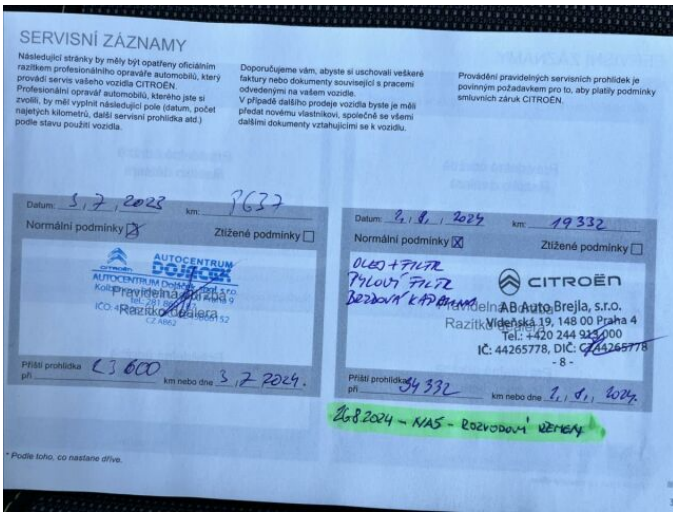 SERVISNÍ ZÁZNAMY
Následující stránky by měly být opatřeny oficiálním
razítkem profesionálního opraváře automobilů, který
provádí servis vašeho vozidla CITROËN.
Profesionální opravář automobilů, kterého jste si
zvolili, by měl vyplnit následující pole (datum, počet
najetých kilometrů, další servisní prohlídka atd.)
podle stavu použití vozidla.
Doporučujeme vám, abyste si uschovali veškeré
faktury nebo dokumenty související s pracemi
odvedenými na vašem vozidle.
V případě dalšího prodeje vozidla byste je měli
předat novému vlastníkovi, společně se všemi
dalšími dokumenty vztahujícími se k vozidlu.
Provádění pravidelných servisních prohlídek je
povinným požadavkem pro to, aby platily podmínky
smluvních záruk CITROËN.
Datum: 3,7,2023 km: 8637
Normální podmínky Ztížené podmínky
CITROËN
AUTOCENTRUM
DOJÁČEK
AUTOCENTRUM Dojáček, spol. s r.o.
Pravidelná údržba
Razítko dealera
CZA862
Příští prohlídka
při 23600 km nebo dne 3,7 2024.
Datum: 2,8,2024 km: 19332
Normální podmínky Ztížené podmínky
OLEJ + FILTR
PYLOVÝ FILTR
BRZDOVÁ KAPALINA
CITROËN
Pravidelná údržba
Razítko dealera
AB Auto Brejla, s.r.o.
Vídeňská 19, 148 00 Praha 4
Tel.: +420 244 913 000
IČ: 44265778, DIČ: CZ44265778
- 8 -
Příští prohlídka
při 34332 km nebo dne 2,8,
26.8.2024 - NÁŠ - ROZVODOVÝ ŘEMEN
* Podle toho, co nastane dříve.
3